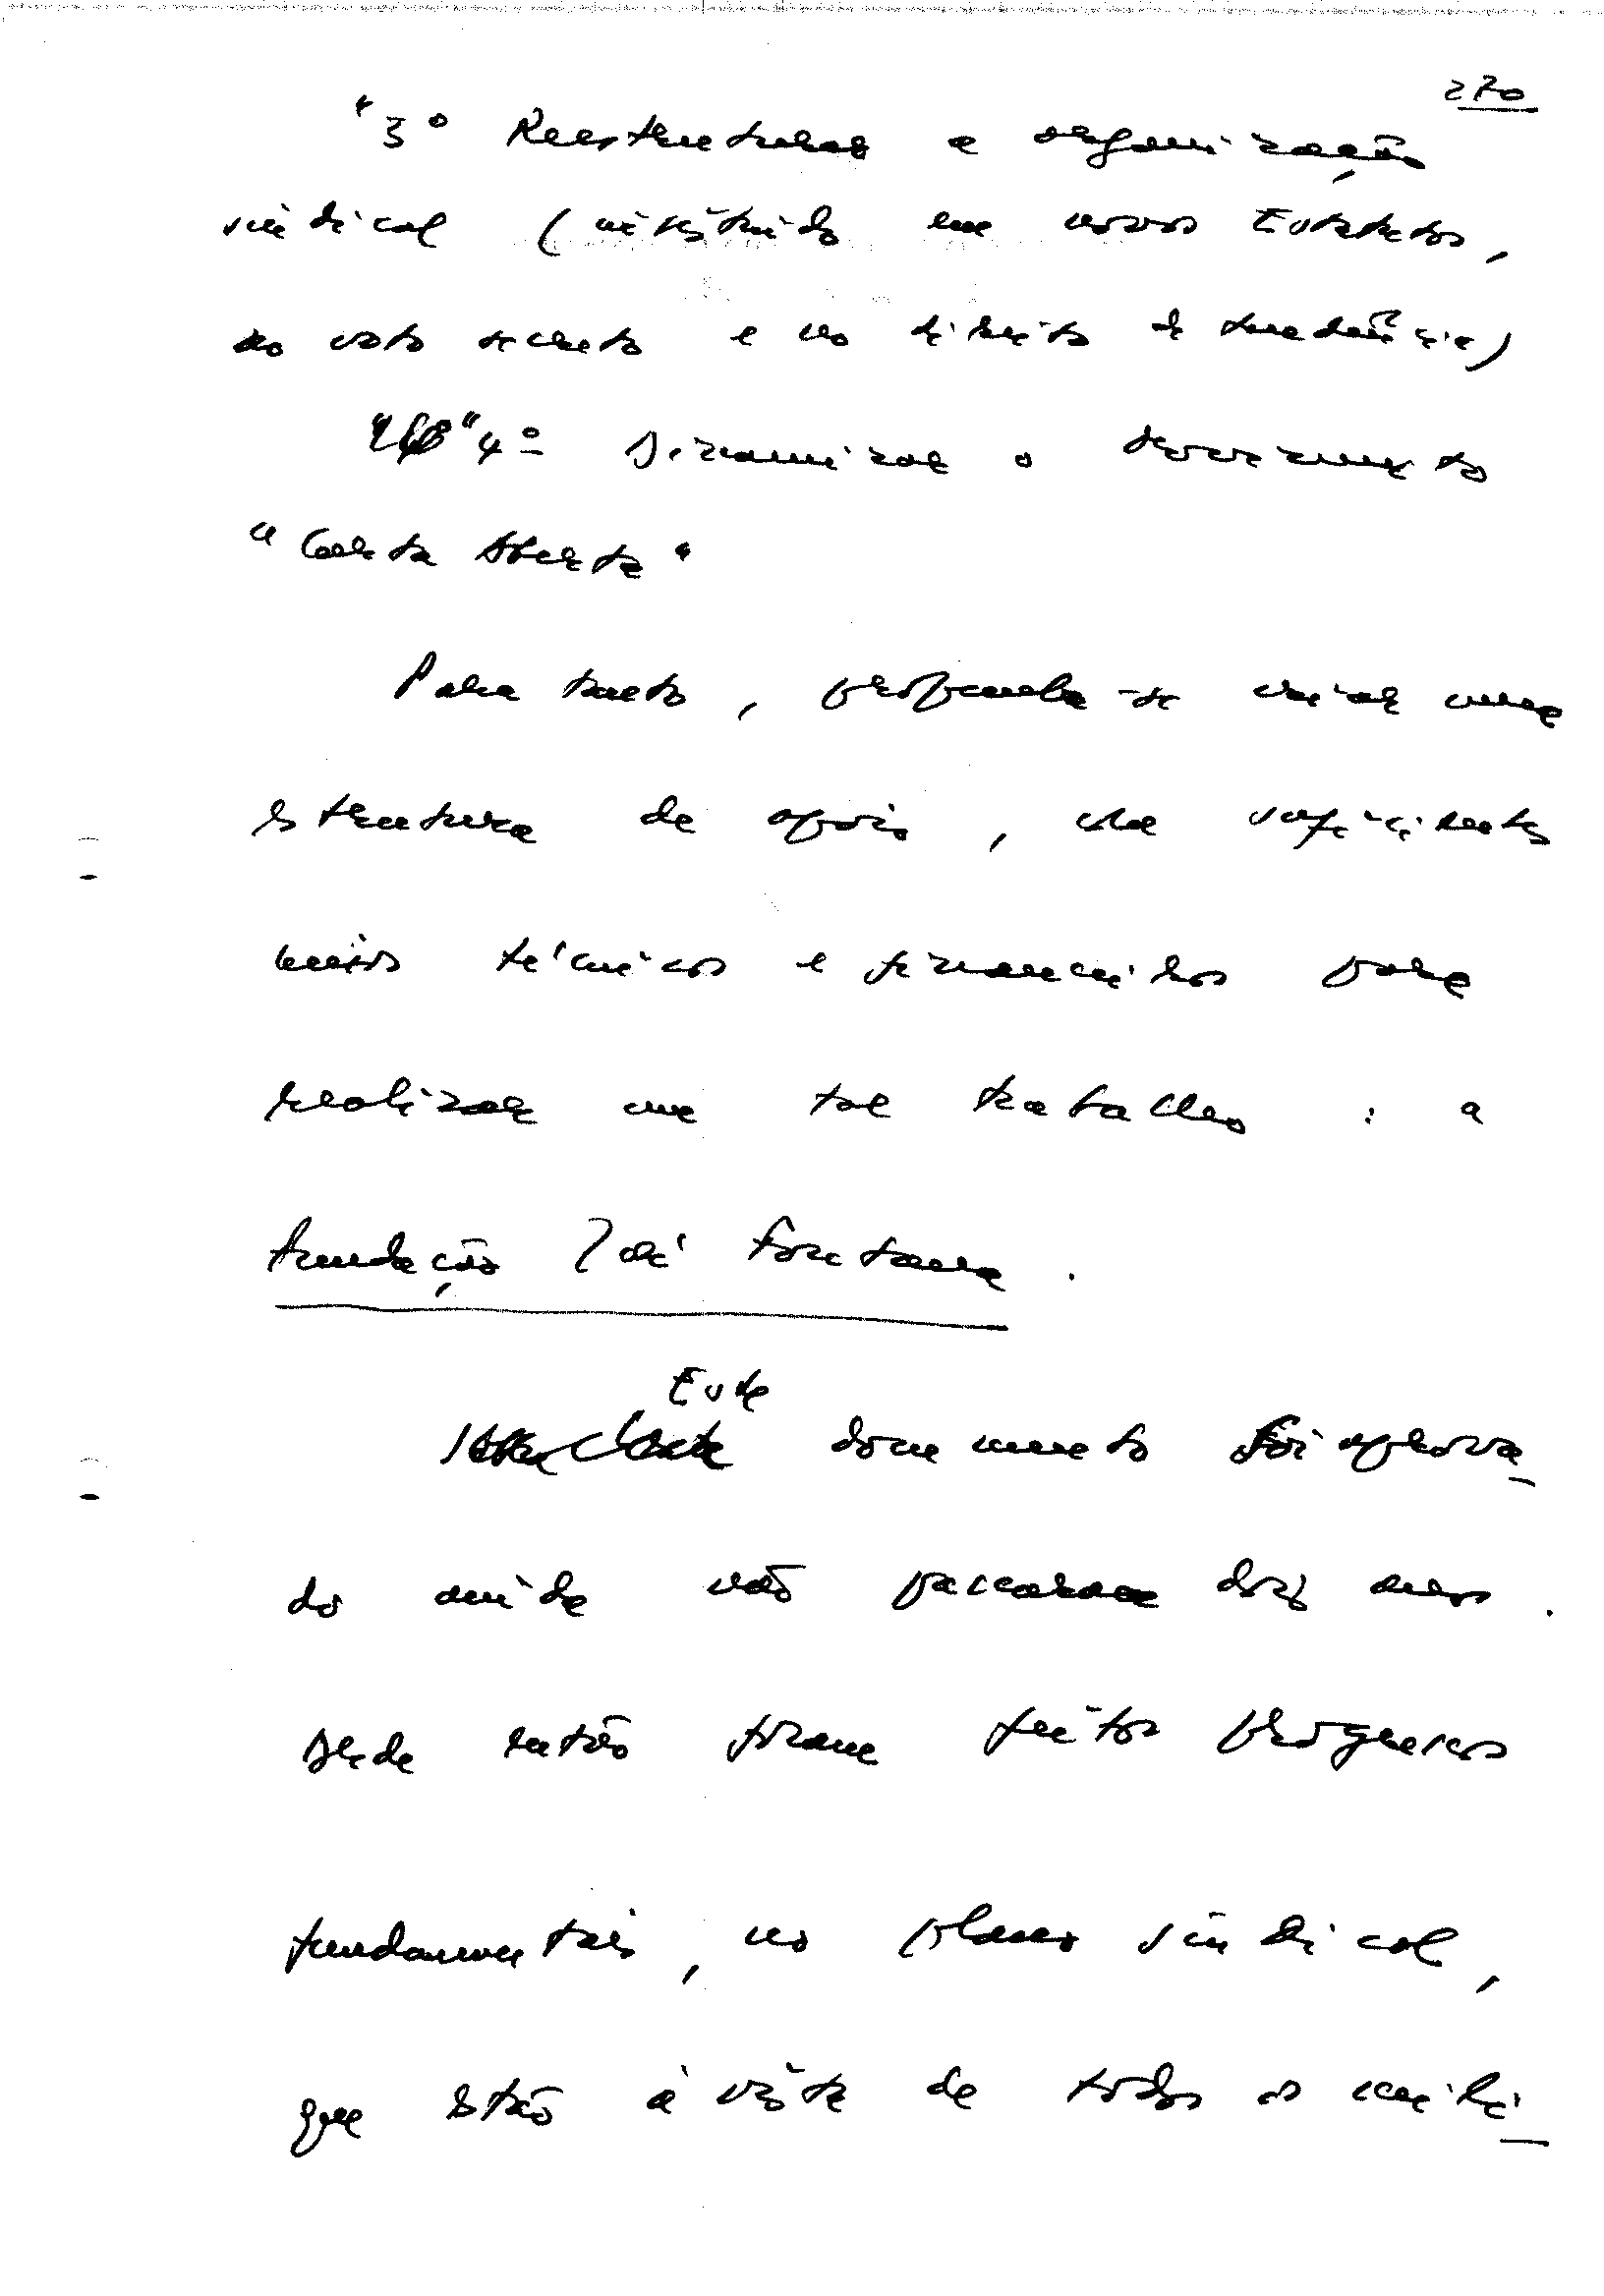 270
"3º Reestruturar a organização
sindical (instituindo em novos Estatutos,
no voto secreto e no direito de tendência)
"4º Dinamizar o movimento
"Carta Aberta"
Para tanto, propunha-se criar uma
estrutura de apoio, com suficientes
meios técnicos e financeiros para
realizar um tal trabalho: a
Fundação José Fontana.
Este
documento foi aprova-
do ainda não passaram dois anos.
Desde então foram feitos progressos
fundamentais, no plano sindical,
que estão à vista de todos os mili-